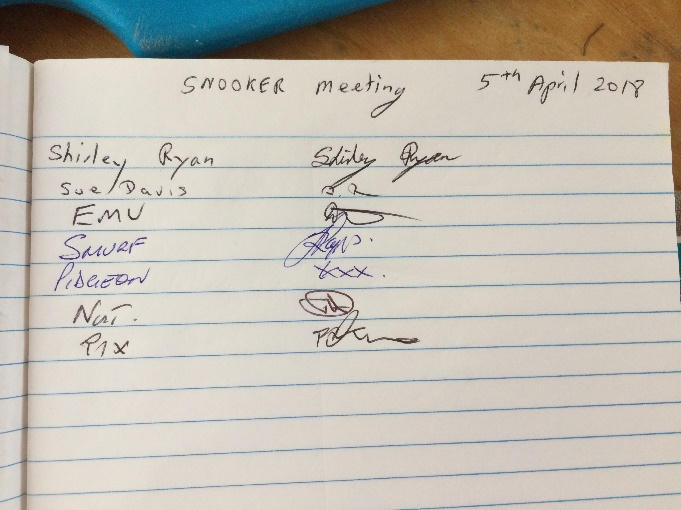 SNOOKER meeting 5th April 2018
Shirley Ryan Shirley Ryan
Sue Davis
EMU
SMURF
PIDGEON xxx.
Nat.
PIX